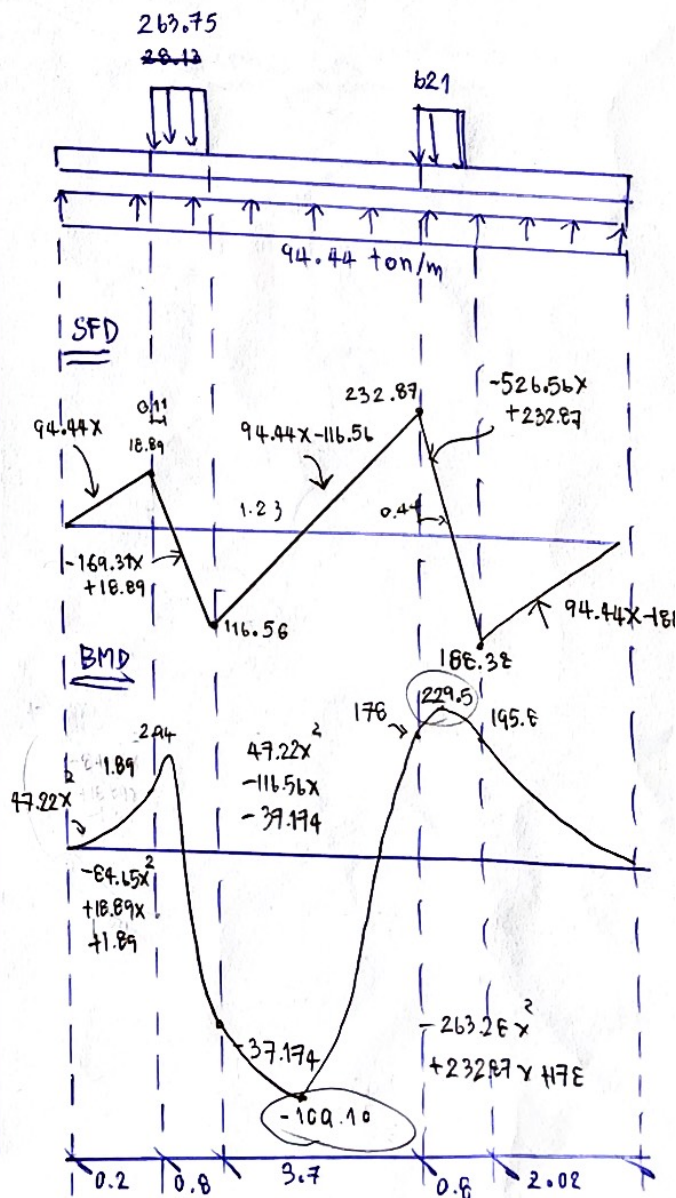 263.75
28.13
621
94.44 ton/m
SFD
0.11
18.89
94.44x
94.44x-116.56
232.87
-526.56x
+232.87
1.23
0.44
-169.31x
+18.89
116.56
94.44x-188
188.38
BMD
2.94
1.89
47.22x²
47.22x²
-116.56x
-37.174
178
229.5
195.8
-84.65x²
+18.89x
+1.89
-37.174
-109.10
-263.28x²
+232.87x+178
0.2
0.8
3.7
0.8
2.02